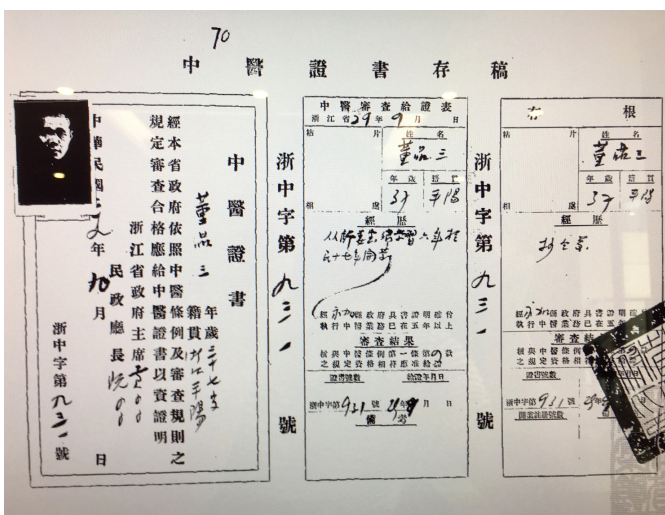 70
中醫證書存稿
中醫證書
董品三
年歲三十七歲
籍貫浙江平陽
經本省政府依照中醫條例及審查規則之
規定審查合格應給中醫證書以資證明
浙江省政府主席
民政廳長阮
中華民國 年九月 日
浙中字第九三一號
浙中字第九三一號
中醫審查給證表
浙江省29年9月 日
粘 片
相 處
姓名
董品三
年歲
37
籍貫
平陽
經歷
經永加縣政府具書證明確曾
執行中醫業務已在五年以上
審查結果
核與中醫條例第一條第 款
之規定資格相符應准給證
證書號數
給證年月日
浙中字第931號
29年9月 日
備考
浙中字第九三一號
存根
粘 片
相 處
姓名
董品三
年歲
37
籍貫
平陽
經歷
經永加縣政府具書證明確
執行中醫業務已在五年以
審查結
核與中醫條例第一條第
之規定資格相符
證書號數
浙中字第931號
開業註冊號數